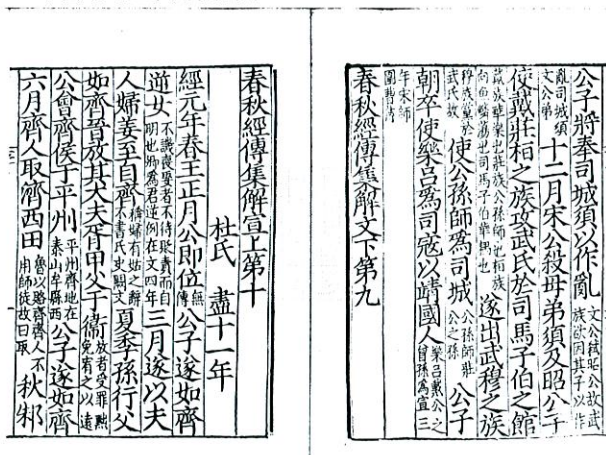 公子將奉司城須以作亂文公弒昭公故武族欲因其子以作
亂司城須文公弟十二月宋公殺母弟須及昭公子
使戴莊桓之族攻武氏於司馬子伯之館
戴族華樂也莊族公孫師也桓族向魚鱗蕩也司馬子伯華耦也遂出武穆之族
穆族黨於武氏故使公孫師爲司城公孫師莊公之孫公子
朝卒使樂呂爲司寇以靖國人樂呂戴公之曾孫爲宣三
年宋師圍曹傳
春秋經傳集解文下第九
春秋經傳集解宣上第十
杜氏 盡十一年
經元年春王正月公即位無傳公子遂如齊
逆女不譏喪娶者不待貶責而自明也卿爲君逆例在文四年三月遂以夫
人婦姜至自齊稱婦有姑之辭不書氏史闕文夏季孫行父
如齊晉放其大夫胥甲父于衞放者受罪黜免宥之以遠
公會齊侯于平州平州齊地在泰山牟縣西公子遂如齊
六月齊人取濟西田魯以賂齊齊人不用師徒故曰取秋邾